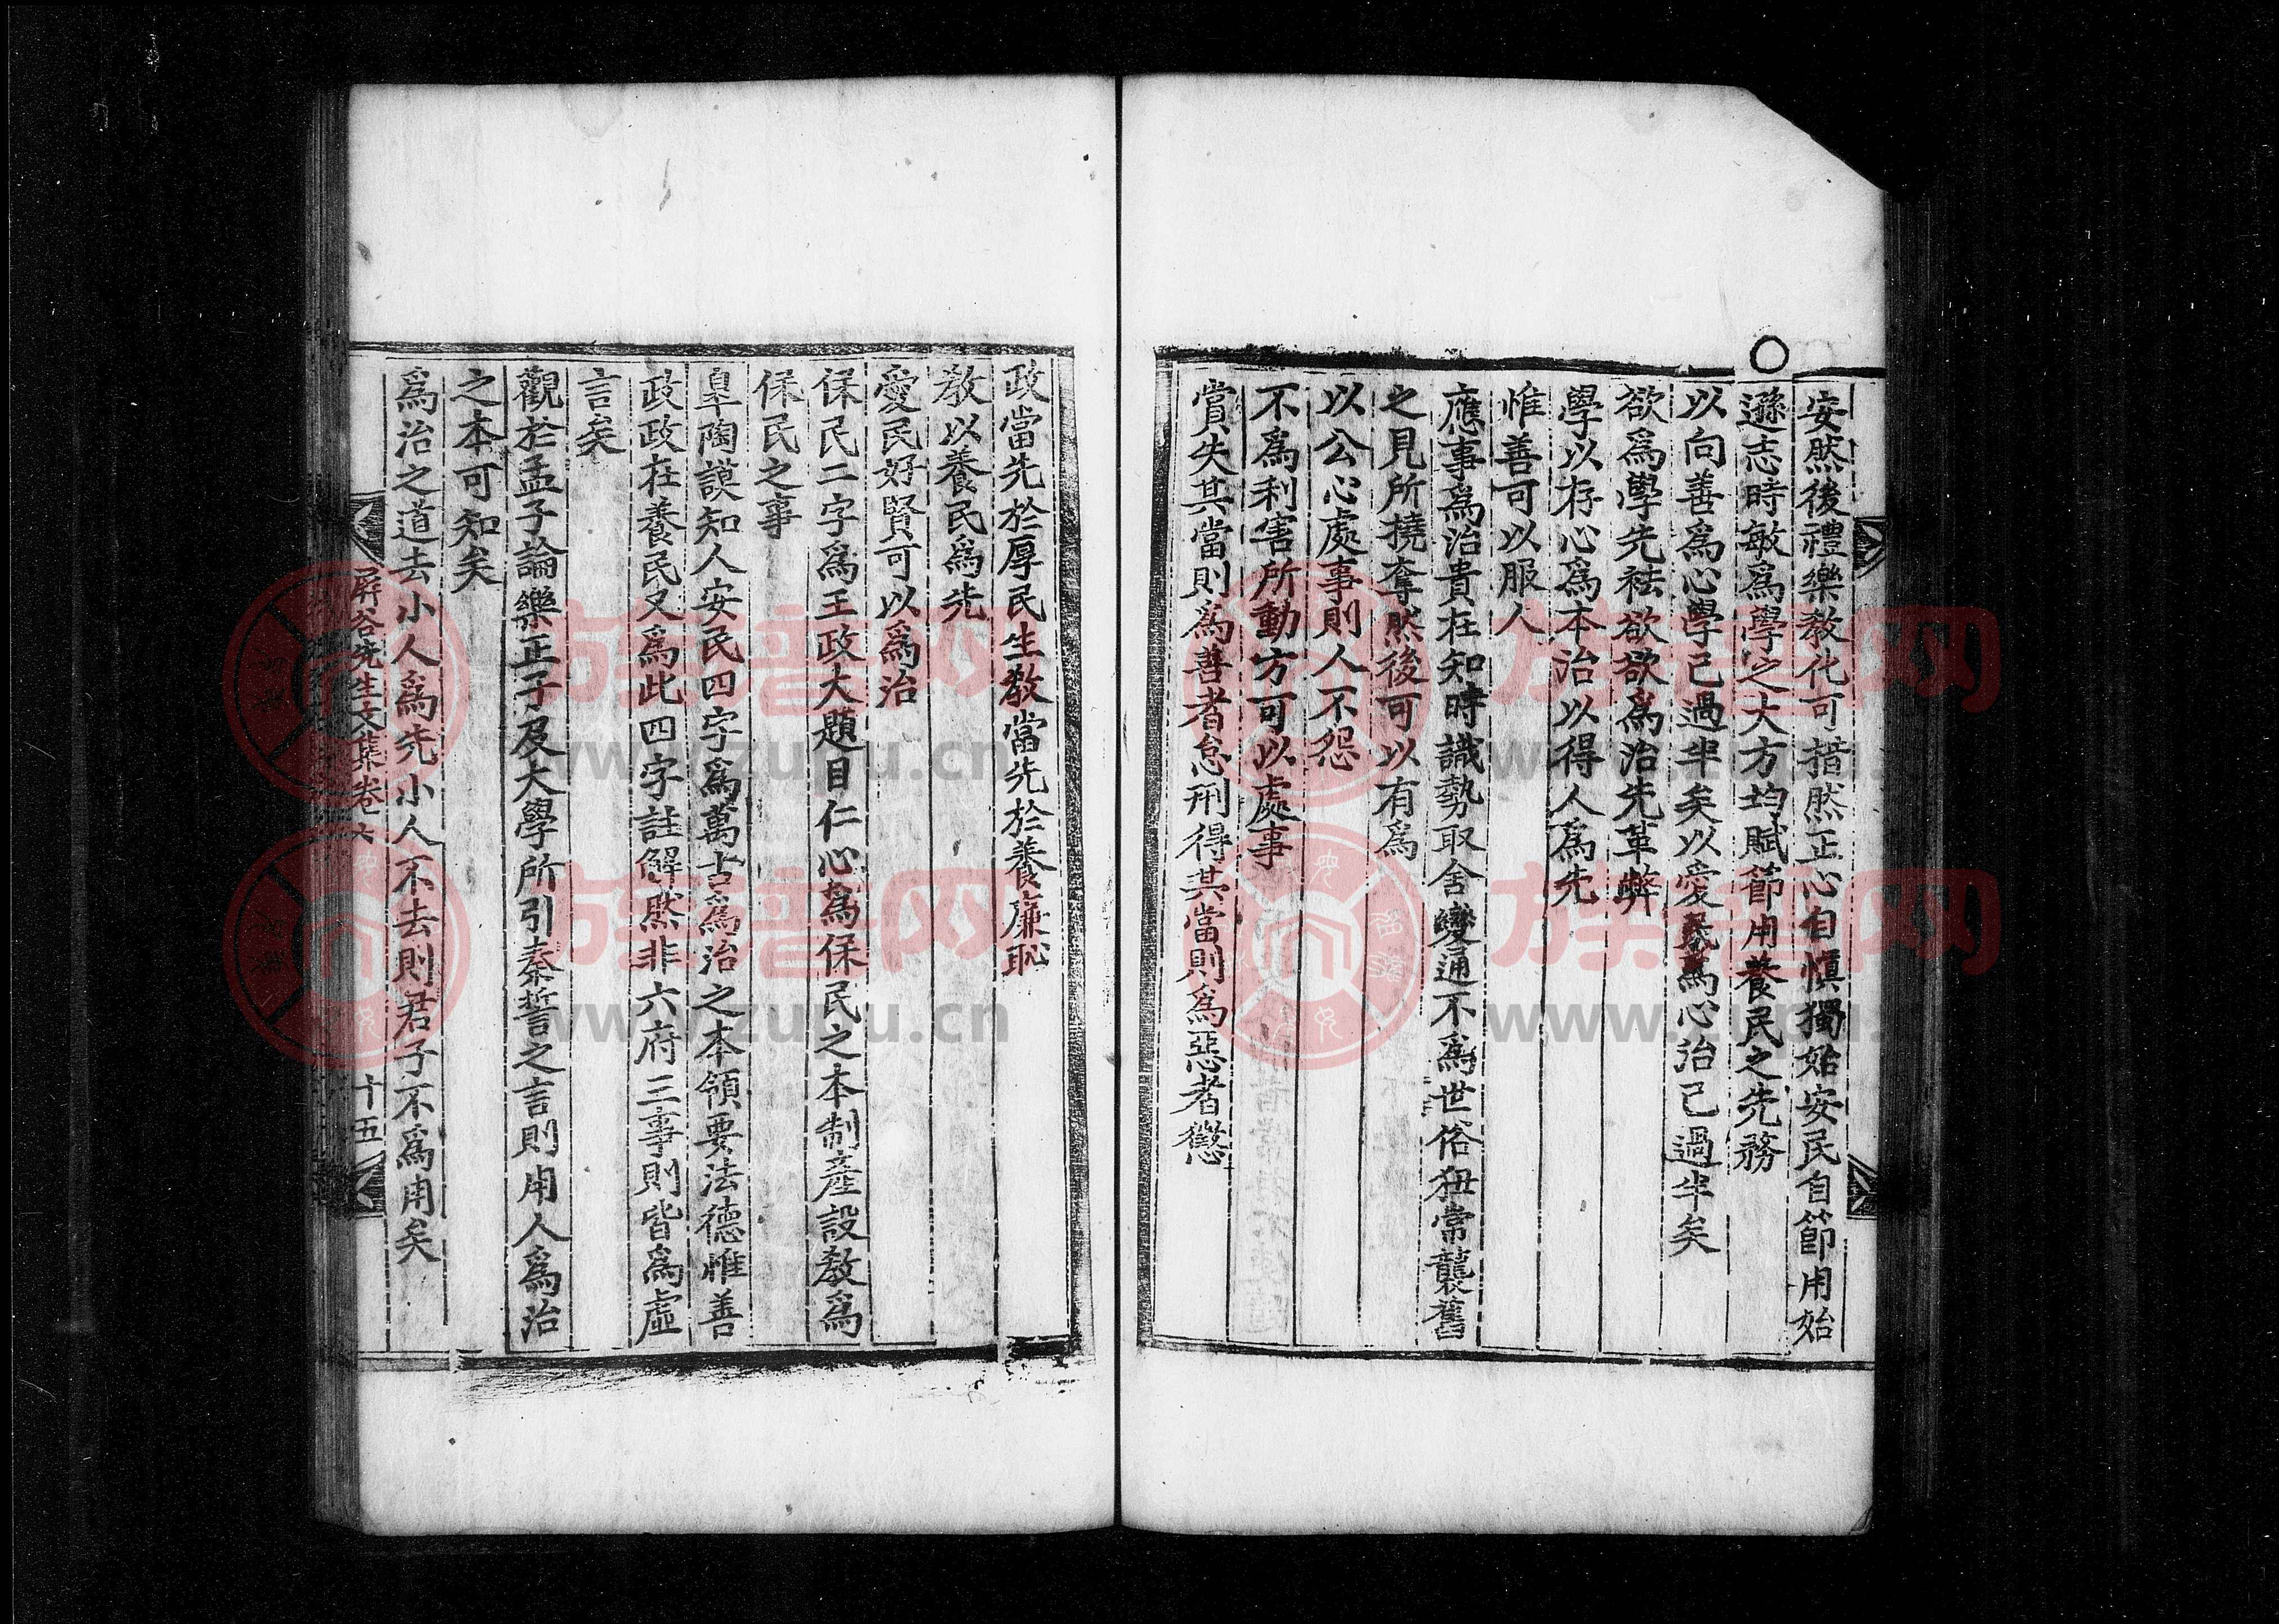 安然後禮樂敎化可措然正心自愼獨始安民自節用始
○遜志時敏爲學之大方均賦節用養民之先務
以向善爲心學已過半矣以愛民爲心治已過半矣
欲爲學先祛欲欲爲治先革弊
學以存心爲本治以得人爲先
惟善可以服人
應事爲治貴在知時識勢取舍變通不爲世俗狃常襲舊
之見所撓奪然後可以有爲
以公心處事則人不怨
不爲利害所動方可以處事
賞失其當則爲善者怠刑得其當則爲惡者懲
政當先於厚民生敎當先於養廉恥
敎以養民爲先
愛民好賢可以爲治
保民二字爲王政大題目仁心爲保民之本制產設敎爲
保民之事
皐陶謨知人安民四字爲萬古爲治之本領要法德惟善
政政在養民又爲此四字註解然非六府三事則皆爲虛
言矣
觀於孟子論樂正子及大學所引秦誓之言則用人爲治
之本可知矣
爲治之道去小人爲先小人不去則君子不爲用矣
屛谷先生文集卷六 十五
族譜网
www.zupu.cn
族譜网
www.zupu.cn
族譜网
www.zupu.cn
族譜网
www.zupu.cn